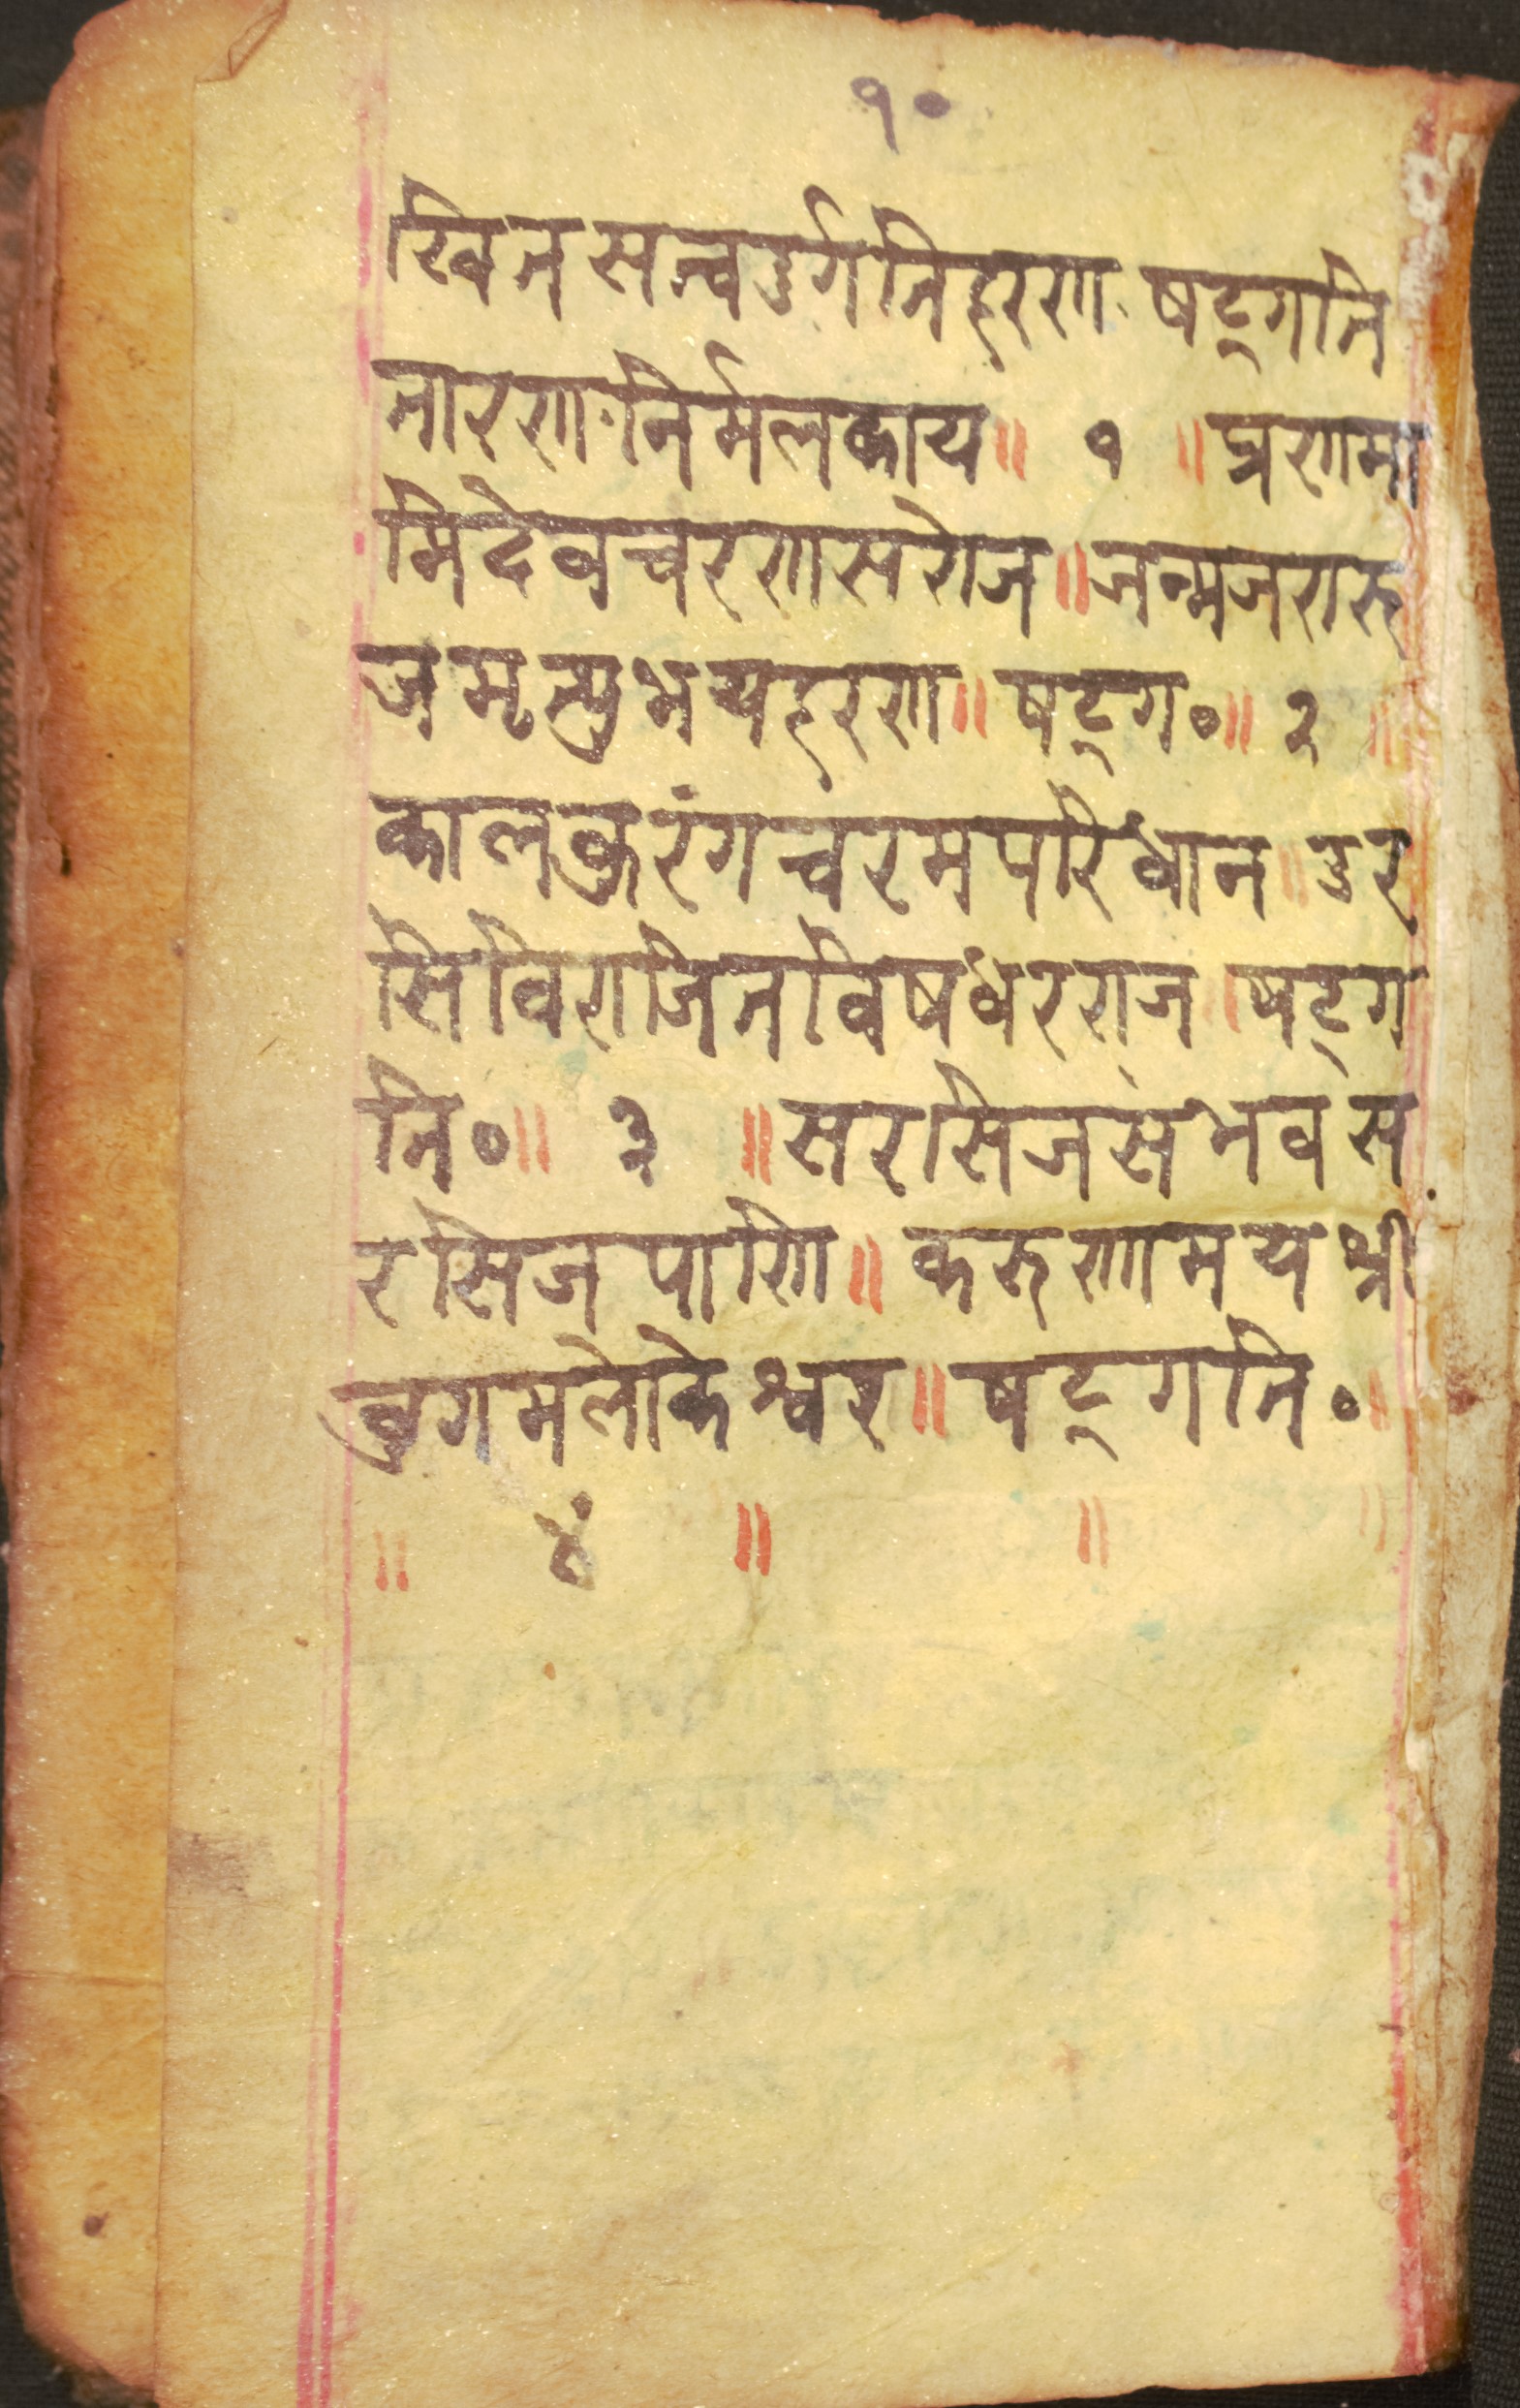 १०
खिन सत्वदुर्गनिहरण षट्गनि
नारण निर्मलकाय॥ १ ॥प्रणमा
मिदेवचरणसरोज॥जन्मजरारु
जमृत्युभयहरण॥षट्ग०॥ २ ॥
कालकुरंगचरमपरिधान॥उर
सिविराजितविषधरराज॥षट्ग
नि०॥ ३ ॥सरसिजसंभवस
रसिजपाणि॥करुणामयश्री
वुगमलोकेश्वर॥षट्गनि०॥
॥ ४ ॥ ॥ ॥